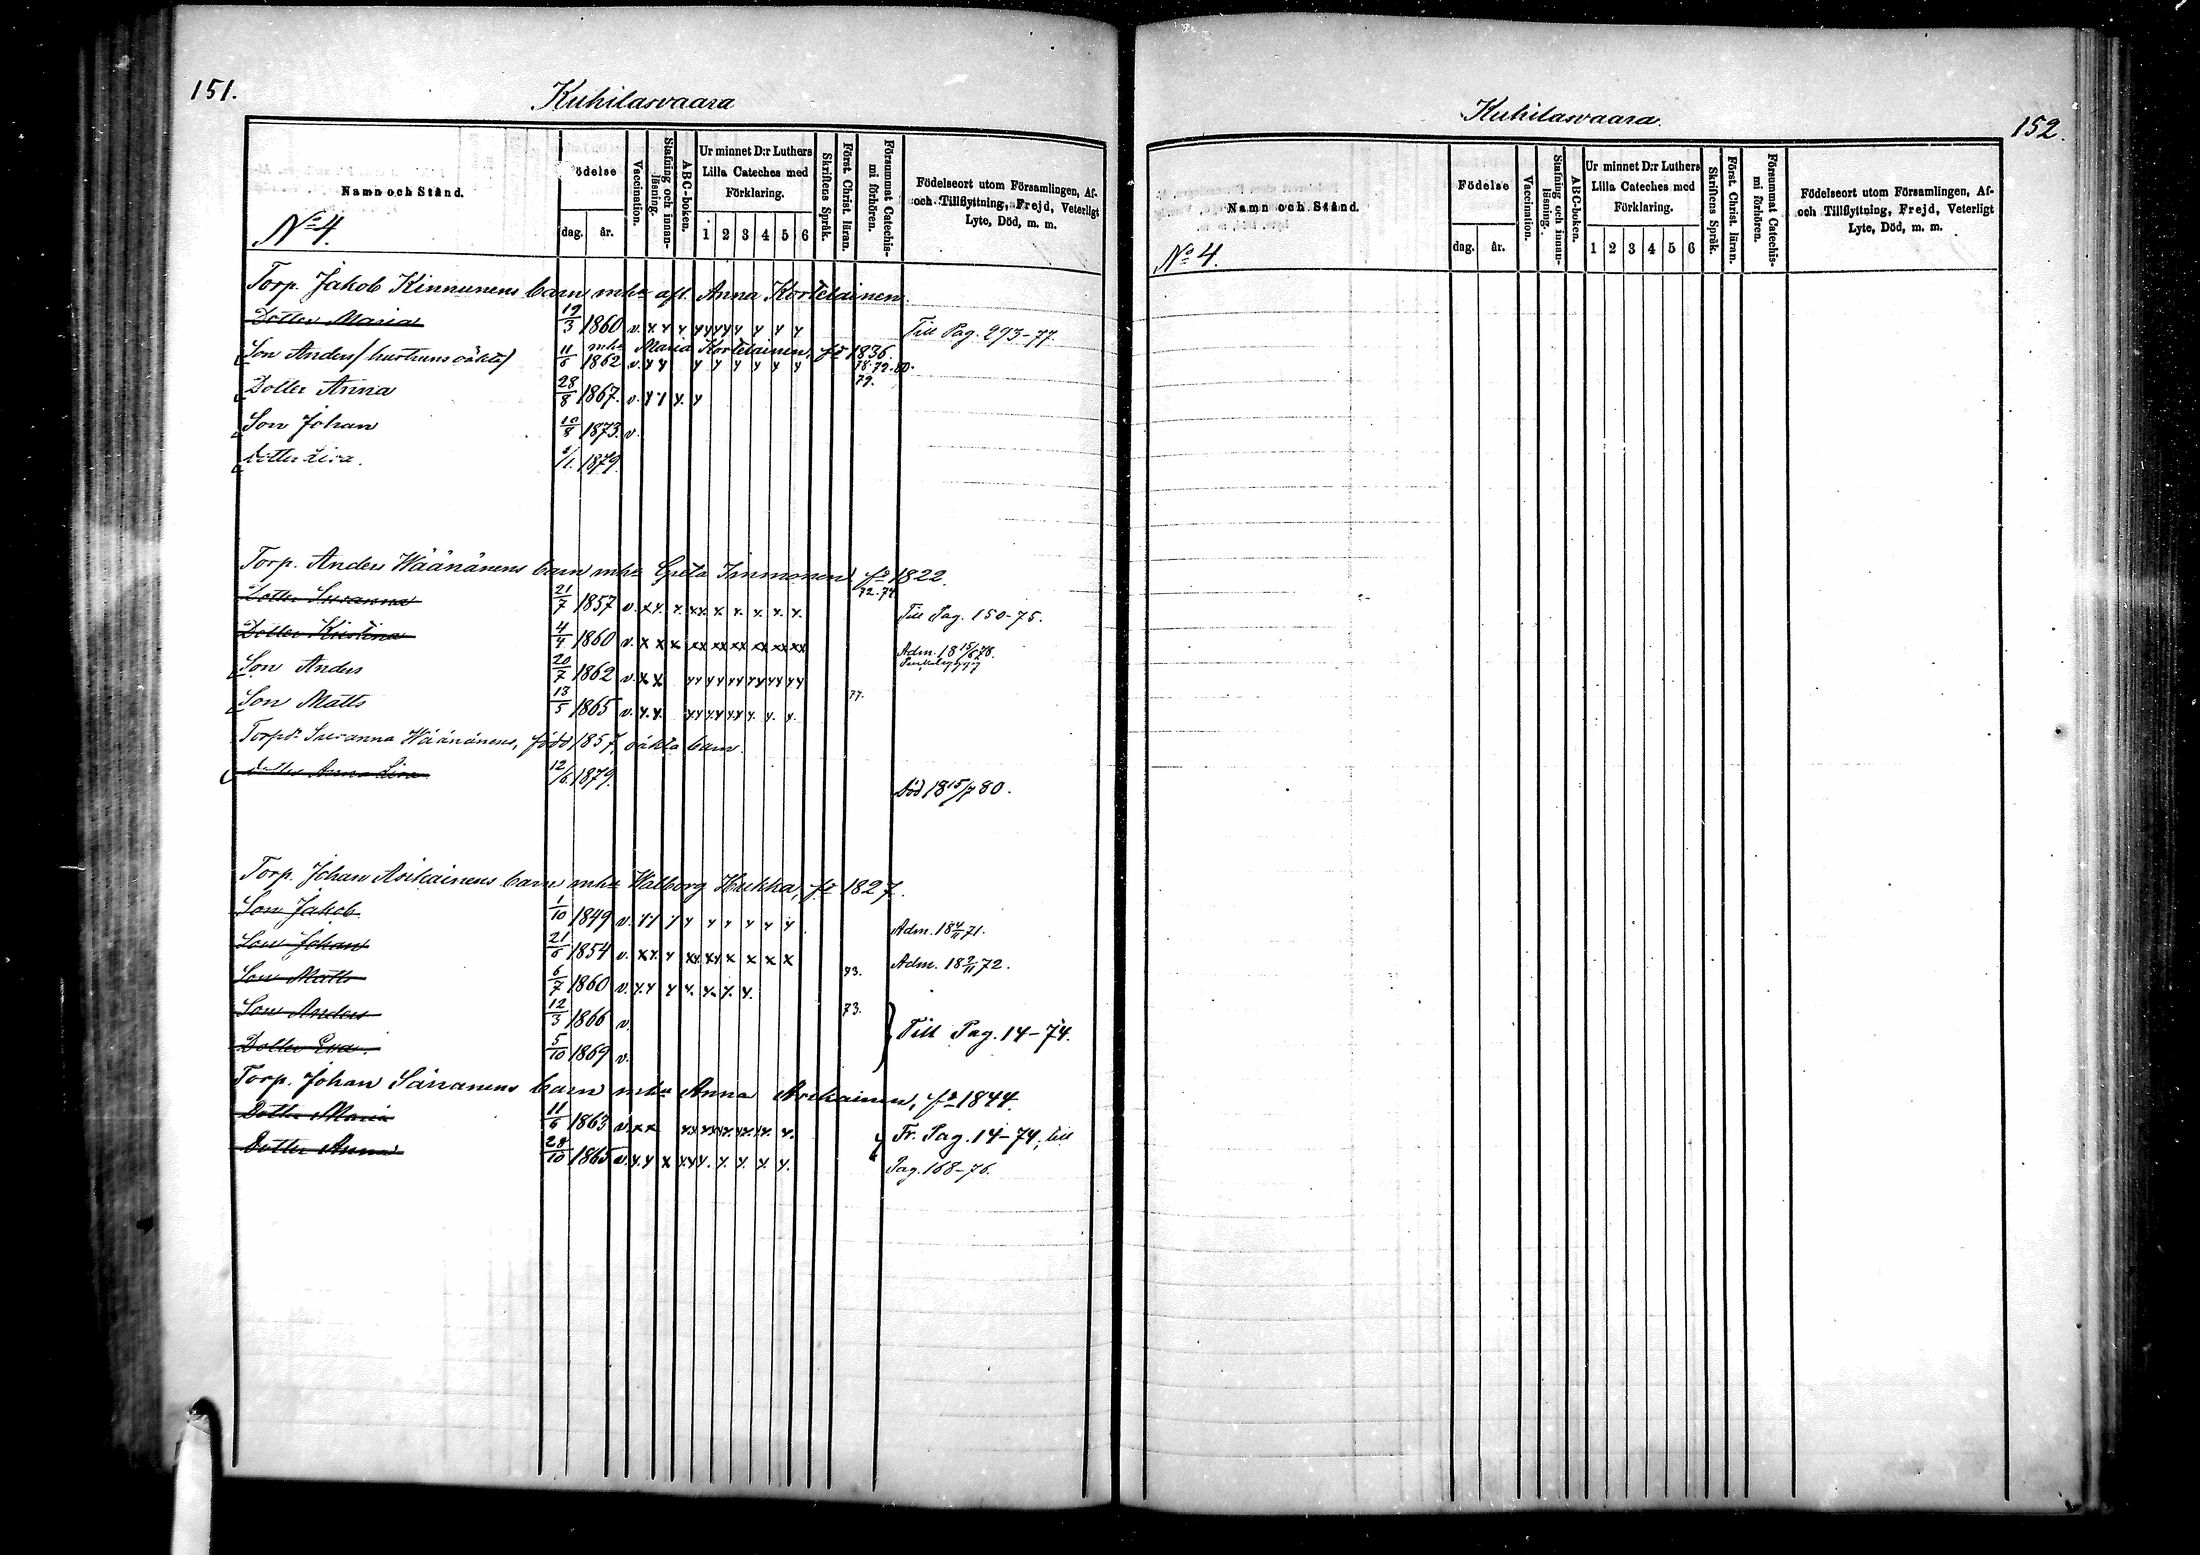 151.
Kuhilasvaara
Namn och Stånd.
ödelse
dag.
år.
Vaccination.
Stafning och innan-
läsning.
ABC-boken.
Ur minnet D:r Luthers
Lilla Cateches med
Förklaring.
1 2 3 4 5 6
Skriftens Språk.
Först. Christ. läran.
Försummat Catechis-
mi förhören.
Födelseort utom Församlingen, Af-
och Tillflyttning, Frejd, Veterligt
Lyte, Död, m. m.
No 4.
Torp. Jakob Kinnunens barn mha afl. Anna Kortelainen.
Dotter Maria 19/3 1860 v. Till Pag. 293-77.
mha Maria Kortelainen, fd 1836.
Son Anders (hustruns oäkta) 11/6 1862 v. 78.72.80.
Dotter Anna 28/8 1867. v. 79.
Son Johan 10/8 1873. v.
Dotter Lisa. /1. 1879.
Torp. Anders Wäänänens barn mha Greta Immonen fd 1822.
Dotter Susanna 21/7 1857 v. 72.74 Till Pag. 150-75.
Dotter Kristina 4/4 1860 v. Adm. 18 15/6 78.
Son Anders 20/7 1862 v.
Son Matts 13/5 1865 v. 77.
Torpdr Susanna Wäänänens, född 1857, oäkta barn.
Dotter Anna Lisa 12/6. 1879. Död 18 15/7 80.
Torp. Johan Asikainens barn mha Walborg Hukka, fd 1827.
Son Jakob 1/10 1849 v. Adm. 18 4/11 71.
Son Johan 21/6 1854 v. Adm. 18 2/11 72.
Son Matts 6/7 1860 v. 73.
Son Anders 12/3 1866 v. 73. Till Pag. 14-74.
Dotter Eva. 5/10 1869 v.
Torp. Johan Särranens barn mha Anna Asikainen, fd 1844.
Dotter Maria 11/6 1863 v. Fr. Pag. 14-74, till
Dotter Anna 28/10 1865 v. Pag. 168-76.
Kuhilasvaara.
152.
Namn och Stånd.
Födelse
dag.
år.
Vaccination.
Stafning och innan-
läsning.
ABC-boken.
Ur minnet D:r Luthers
Lilla Cateches med
Förklaring.
1 2 3 4 5 6
Skriftens Språk.
Först. Christ. läran.
Försummat Catechis-
mi förhören.
Födelseort utom Församlingen, Af-
och Tillflyttning, Frejd, Veterligt
Lyte, Död, m. m.
No 4.